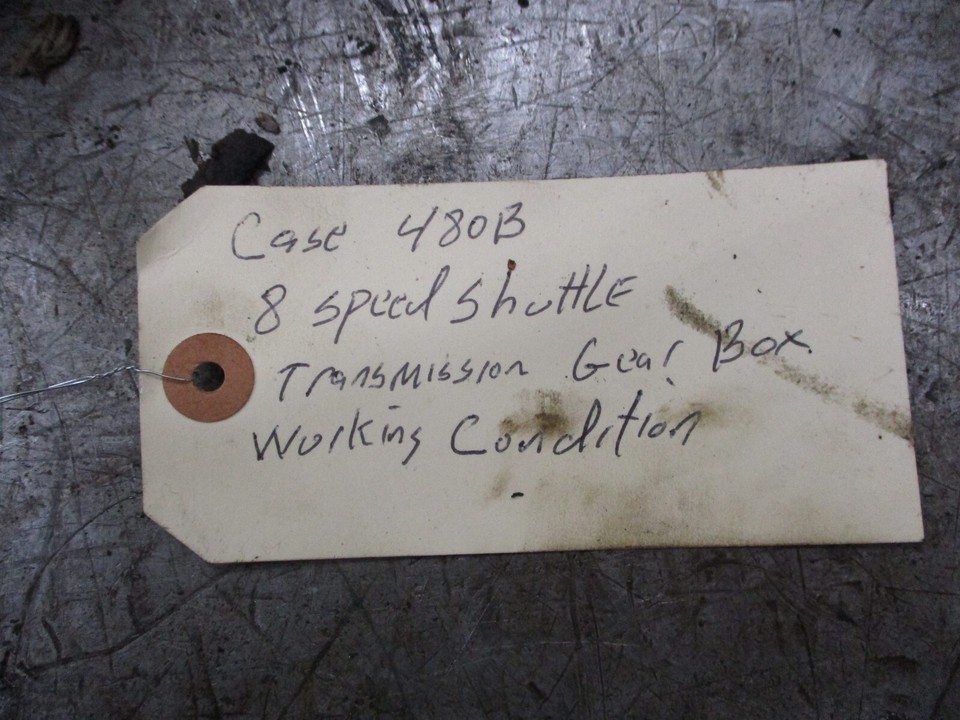 Case 480B
8 speed shuttle
Transmission Gear Box
Working Condition